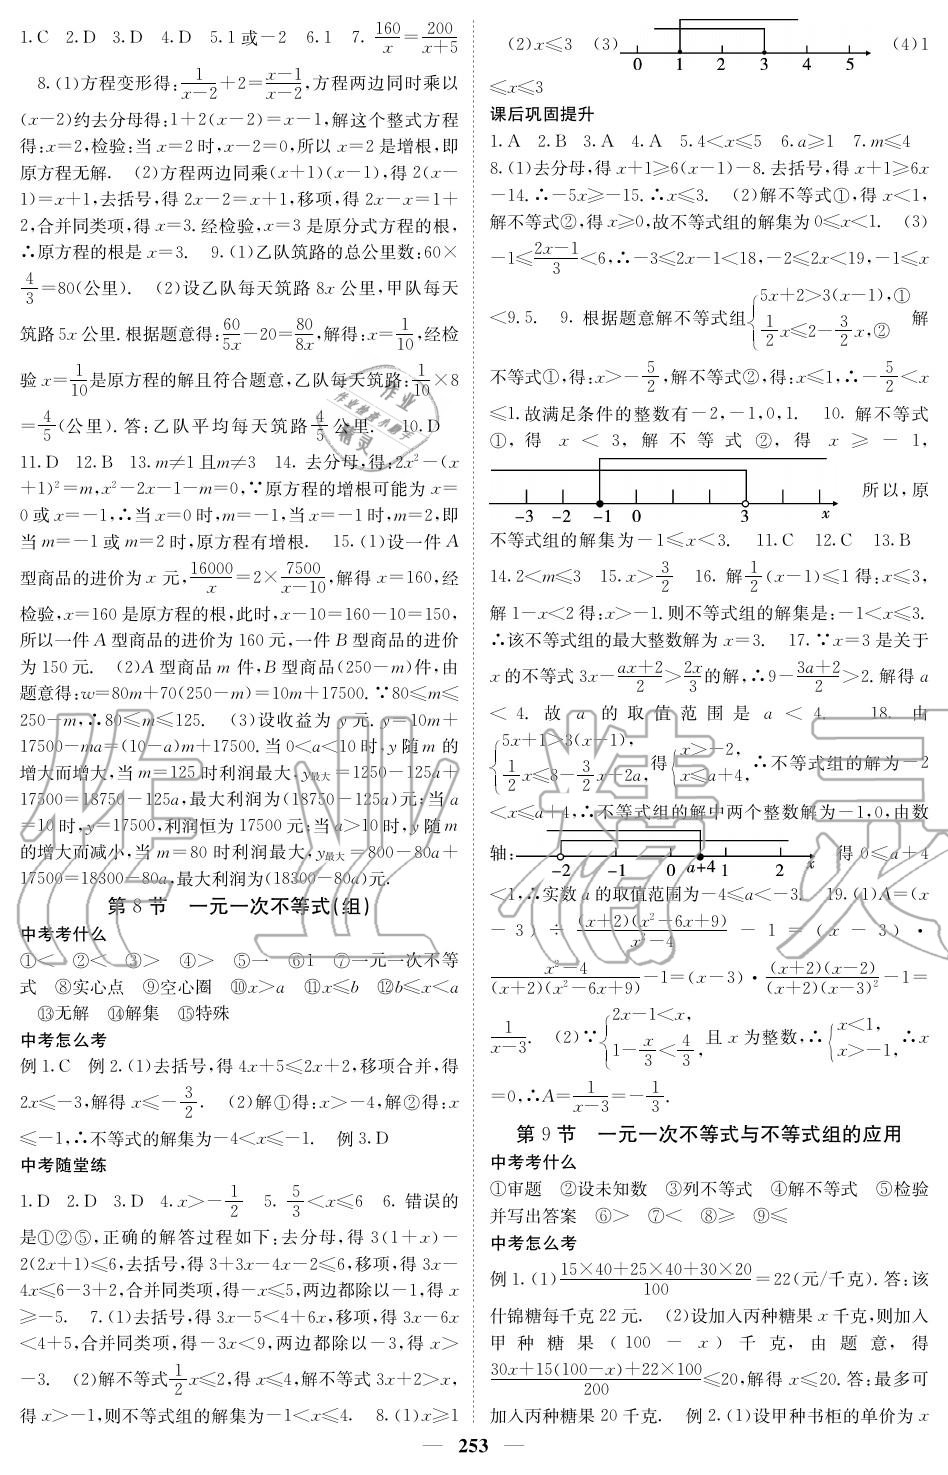 1.C　2.D　3.D　4.D　5.1 或-2　6.1　7. 160/x=200/(x+5)
8.(1)方程变形得:1/(x-2)+2=(x-1)/(x-2),方程两边同时乘以
(x-2)约去分母得:1+2(x-2)=x-1,解这个整式方程
得:x=2,检验:当 x=2 时,x-2=0,所以 x=2 是增根,即
原方程无解.　(2)方程两边同乘(x+1)(x-1),得 2(x-
1)=x+1,去括号,得 2x-2=x+1,移项,得 2x-x=1+
2,合并同类项,得 x=3.经检验,x=3 是原分式方程的根,
∴原方程的根是 x=3.　9.(1)乙队筑路的总公里数:60×
4/3=80(公里).　(2)设乙队每天筑路 8x 公里,甲队每天
筑路 5x 公里.根据题意得:60/5x-20=80/8x,解得:x=1/10,经检
验 x=1/10是原方程的解且符合题意,乙队每天筑路:1/10×8
=4/5(公里).答:乙队平均每天筑路4/5公里.　10.D
11.D　12.B　13.m≠1 且m≠3　14. 去分母,得:2x²-(x
+1)²=m,x²-2x-1-m=0,∵原方程的增根可能为 x=
0 或 x=-1,∴当 x=0 时,m=-1,当 x=-1 时,m=2,即
当 m=-1 或 m=2 时,原方程有增根.　15.(1)设一件 A
型商品的进价为 x 元,16000/x=2×7500/(x-10),解得 x=160,经
检验,x=160 是原方程的根,此时,x-10=160-10=150,
所以一件 A 型商品的进价为 160 元,一件 B 型商品的进价
为 150 元.　(2)A 型商品 m 件,B 型商品(250-m)件,由
题意得:w=80m+70(250-m)=10m+17500.∵80≤m≤
250-m,∴80≤m≤125.　(3)设收益为 y 元.y=10m+
17500-ma=(10-a)m+17500.当 0<a<10 时,y 随 m 的
增大而增大,当 m=125 时利润最大,y最大=1250-125a+
17500=18750-125a,最大利润为(18750-125a)元;当 a
=10 时,y=17500,利润恒为 17500 元;当 a>10 时,y 随 m
的增大而减小,当 m=80 时利润最大,y最大=800-80a+
17500=18300-80a,最大利润为(18300-80a)元.
第 8 节　一元一次不等式(组)
中考考什么
①<　②<　③>　④>　⑤一　⑥1　⑦一元一次不等
式　⑧实心点　⑨空心圈　⑩x>a　⑪x≤b　⑫b≤x<a
⑬无解　⑭解集　⑮特殊
中考怎么考
例 1.C　例 2.(1)去括号,得 4x+5≤2x+2,移项合并,得
2x≤-3,解得 x≤-3/2.　(2)解①得:x>-4,解②得:x
≤-1,∴不等式的解集为-4<x≤-1.　例 3.D
中考随堂练
1.D　2.D　3.D　4.x>-1/2　5. 5/3<x≤6　6. 错误的
是①②⑤,正确的解答过程如下:去分母,得 3(1+x)-
2(2x+1)≤6,去括号,得 3+3x-4x-2≤6,移项,得 3x-
4x≤6-3+2,合并同类项,得-x≤5,两边都除以-1,得 x
≥-5.　7.(1)去括号,得 3x-5<4+6x,移项,得 3x-6x
<4+5,合并同类项,得-3x<9,两边都除以-3,得 x>
-3.　(2)解不等式1/2x≤2,得 x≤4,解不等式 3x+2>x,
得 x>-1,则不等式组的解集为-1<x≤4.　8.(1)x≥1
(2)x≤3　(3) 0 1 2 3 4 5　(4)1
≤x≤3
课后巩固提升
1.A　2.B　3.A　4.A　5.4<x≤5　6.a≥1　7.m≤4
8.(1)去分母,得 x+1≥6(x-1)-8.去括号,得 x+1≥6x
-14.∴-5x≥-15.∴x≤3.　(2)解不等式①,得 x<1,
解不等式②,得 x≥0,故不等式组的解集为 0≤x<1.　(3)
-1≤(2x-1)/3<6,∴-3≤2x-1<18,-2≤2x<19,-1≤x
<9.5.　9. 根据题意解不等式组{5x+2>3(x-1),① 1/2x≤2-3/2x,②　解
不等式①,得:x>-5/2,解不等式②,得:x≤1,∴-5/2<x
≤1.故满足条件的整数有-2,-1,0,1.　10. 解不等式
①,得 x<3,解不等式②,得 x≥-1,
-3 -2 -1 0 3 x　所以,原
不等式组的解集为-1≤x<3.　11.C　12.C　13.B
14.2<m≤3　15.x>3/2　16. 解1/2(x-1)≤1 得:x≤3,
解 1-x<2 得:x>-1.则不等式组的解集是:-1<x≤3.
∴该不等式组的最大整数解为 x=3.　17.∵x=3 是关于
x 的不等式 3x-(ax+2)/2>2x/3的解,∴9-(3a+2)/2>2.解得 a
<4.故 a 的取值范围是 a<4.　18. 由
{5x+1>3(x-1), 1/2x≤8-3/2x+2a,得{x>-2, x≤a+4,∴不等式组的解为-2
<x≤a+4,∴不等式组的解中两个整数解为-1,0,由数
轴: -2 -1 0 a+4 1 2 x　得 0≤a+4
<1,∴实数 a 的取值范围为-4≤a<-3.　19.(1)A=(x
-3)÷(x+2)(x²-6x+9)/(x²-4)-1=(x-3)·
(x²-4)/(x+2)(x²-6x+9)-1=(x-3)·(x+2)(x-2)/(x+2)(x-3)²-1=
1/(x-3).　(2)∵{2x-1<x, 1-x/3<4/3,且 x 为整数,∴{x<1, x>-1,∴x
=0,∴A=1/(x-3)=-1/3.
第 9 节　一元一次不等式与不等式组的应用
中考考什么
①审题　②设未知数　③列不等式　④解不等式　⑤检验
并写出答案　⑥>　⑦<　⑧≥　⑨≤
中考怎么考
例 1.(1)(15×40+25×40+30×20)/100=22(元/千克).答:该
什锦糖每千克 22 元.　(2)设加入丙种糖果 x 千克,则加入
甲种糖果(100-x)千克,由题意,得
(30x+15(100-x)+22×100)/200≤20,解得 x≤20.答:最多可
加入丙种糖果 20 千克.　例 2.(1)设甲种书柜的单价为 x
— 253 —
作业精灵